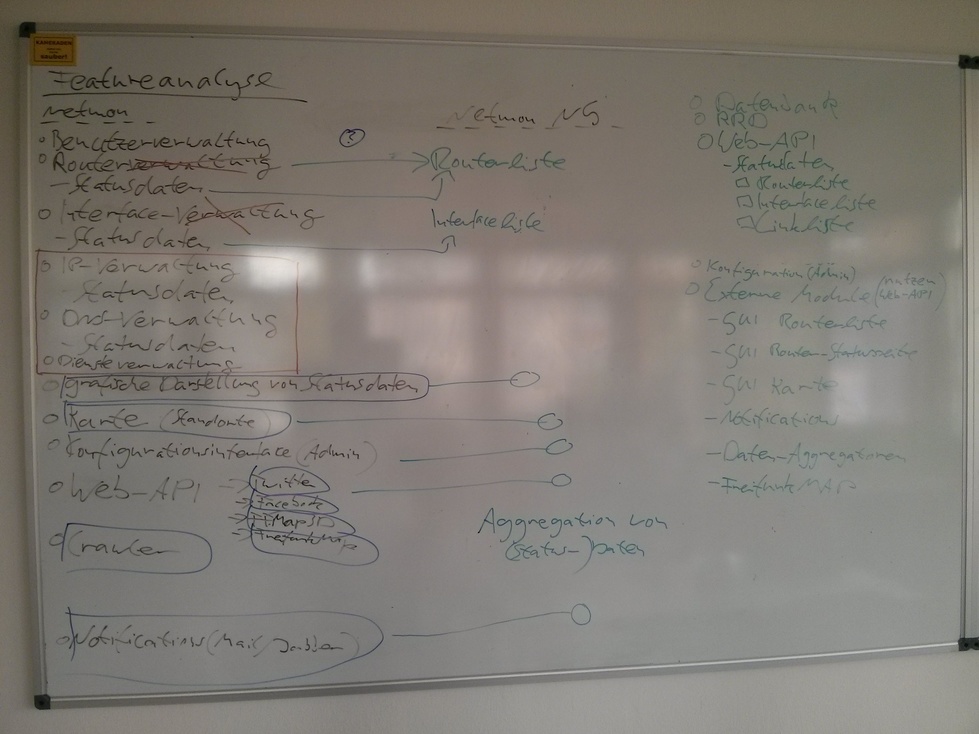 KAMERADEN
saubert
Featureanalyse
netmon
Benutzerverwaltung
Routerverwaltung
- Statusdaten
Interface-Verwaltung
- Statusdaten
IP-Verwaltung
- Statusdaten
DNS-Verwaltung
- Statusdaten
Diensteverwaltung
grafische Darstellung von Statusdaten
Karte (Standorte)
Konfigurationsinterface (Admin)
Web-API
→ Twitter
→ Facebook
→
→ FreifunkMap
Crawler
Notifications (Mail/Jabber)
?
Netmon NG
Routerliste
Interfaceliste
Aggregation von
(Status-)Daten
Datenbank
RRD
Web-API
- Statusdaten
□ Routerliste
□ Interfaceliste
□ Linkliste
Konfiguration (Admin)
Externe Module (nutzen Web-API)
- GUI Routerliste
- GUI Router-Statusseite
- GUI Karte
- Notifications
- Daten-Aggregatoren
- Freifunk MAP